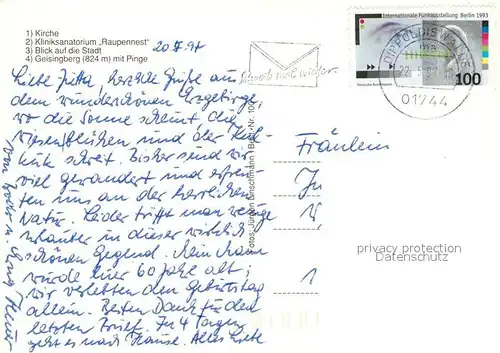 1) Kirche
2) Kliniksanatorium „Raupennest"
3) Blick auf die Stadt
4) Geisingberg (824 m) mit Pinge
Internationale Funkausstellung Berlin 1993
100
DIPPOLDISWALDE
01744
Schreib mal wieder
Liebe Jutta, herzliche Grüße aus
dem wunderschönen Erzgebirge,
wo die Sonne scheint, die
Wiesen blühen und der Kuk-
kuk schreit. Bisher sind wir
viel gewandert und erfreu-
ten uns an der herrlichen
Natur. Leider trifft man wenige
in dieser wirklich
schönen Gegend. Mein Mann
wurde hier 60 Jahre alt;
wir verlebten den Geburtstag
allein. Besten Dank für den
letzten Brief. In 4 Tagen
geht es nach Hause. Alles Liebe
Fräulein
privacy protection
Datenschutz